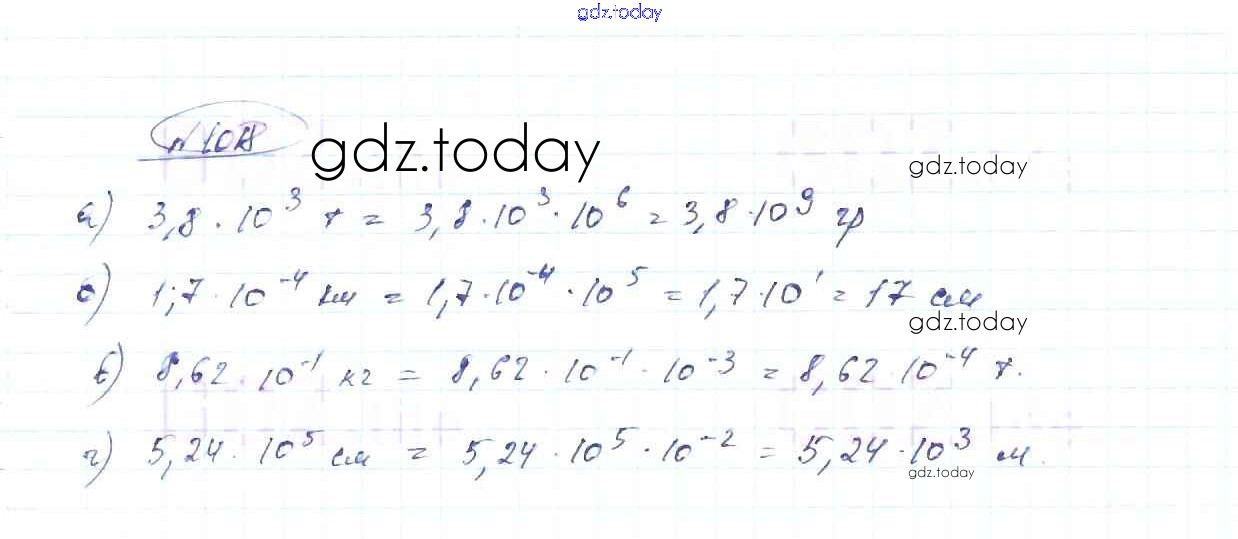 gdz.today
№ 1018
gdz.today
gdz.today
а) 3,8 · 10³ т = 3,8 · 10³ · 10⁶ = 3,8 · 10⁹ гр
б) 1,7 · 10⁻⁴ км = 1,7 · 10⁻⁴ · 10⁵ = 1,7 · 10¹ = 17 см
gdz.today
в) 8,62 · 10⁻¹ кг = 8,62 · 10⁻¹ · 10⁻³ = 8,62 · 10⁻⁴ т.
г) 5,24 · 10⁵ см = 5,24 · 10⁵ · 10⁻² = 5,24 · 10³ м.
gdz.today